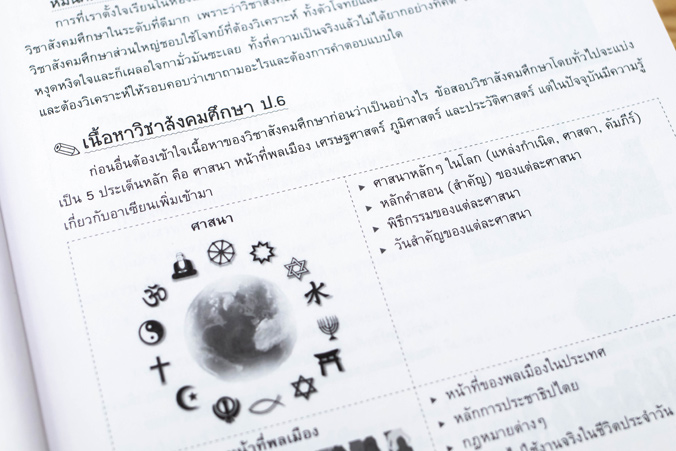 การที่เราตั้งใจเรียนในห้อง
วิชาสังคมศึกษาในระดับที่ดีมาก เพราะว่าวิชาสังคม
วิชาสังคมศึกษาส่วนใหญ่ชอบใช้โจทย์ที่ต้องวิเคราะห์ ทั้งตัวโจทย์แล
หงุดหงิดใจและก็เผลอใจกามั่วมันซะเลย ทั้งที่ความเป็นจริงแล้วไม่ได้ยากอย่างที่คิด
และต้องวิเคราะห์ให้รอบคอบว่าเขาถามอะไรและต้องการคำตอบแบบใด
เนื้อหาวิชาสังคมศึกษา ป.6
ก่อนอื่นต้องเข้าใจเนื้อหาของวิชาสังคมศึกษาก่อนว่าเป็นอย่างไร ข้อสอบวิชาสังคมศึกษาโดยทั่วไปจะแบ่ง
เป็น 5 ประเด็นหลัก คือ ศาสนา หน้าที่พลเมือง เศรษฐศาสตร์ ภูมิศาสตร์ และประวัติศาสตร์ แต่ในปัจจุบันมีความรู้
เกี่ยวกับอาเซียนเพิ่มเข้ามา
ศาสนา
▶ ศาสนาหลักๆ ในโลก (แหล่งกำเนิด, ศาสดา, คัมภีร์)
▶ หลักคำสอน (สำคัญ) ของแต่ละศาสนา
▶ พิธีกรรมของแต่ละศาสนา
▶ วันสำคัญของแต่ละศาสนา
หน้าที่พลเมือง
▶ หน้าที่ของพลเมืองในประเทศ
▶ หลักการประชาธิปไตย
▶ กฎหมายต่างๆ
ใช้งานจริงในชีวิตประจำวัน